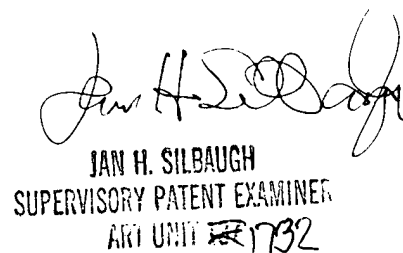 Jan H. Silbaugh
JAN H. SILBAUGH
SUPERVISORY PATENT EXAMINER
ART UNIT 1732